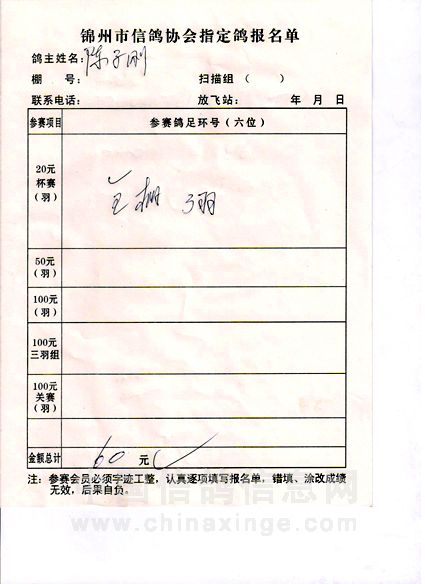 锦州市信鸽协会指定鸽报名单
鸽主姓名：陈子刚
棚 号： 扫描组（ ）
联系电话： 放飞站： 年 月 日
参赛项目 参赛鸽足环号（六位）
20元
杯赛
（羽）
全棚 3羽
50元
（羽）
100元
（羽）
100元
三羽组
100元
关赛
（羽）
金额总计 60 元
注：参赛会员必须字迹工整，认真逐项填写报名单，错填、涂改成绩
无效，后果自负。
中国信鸽信息网
www.chinaxinge.com